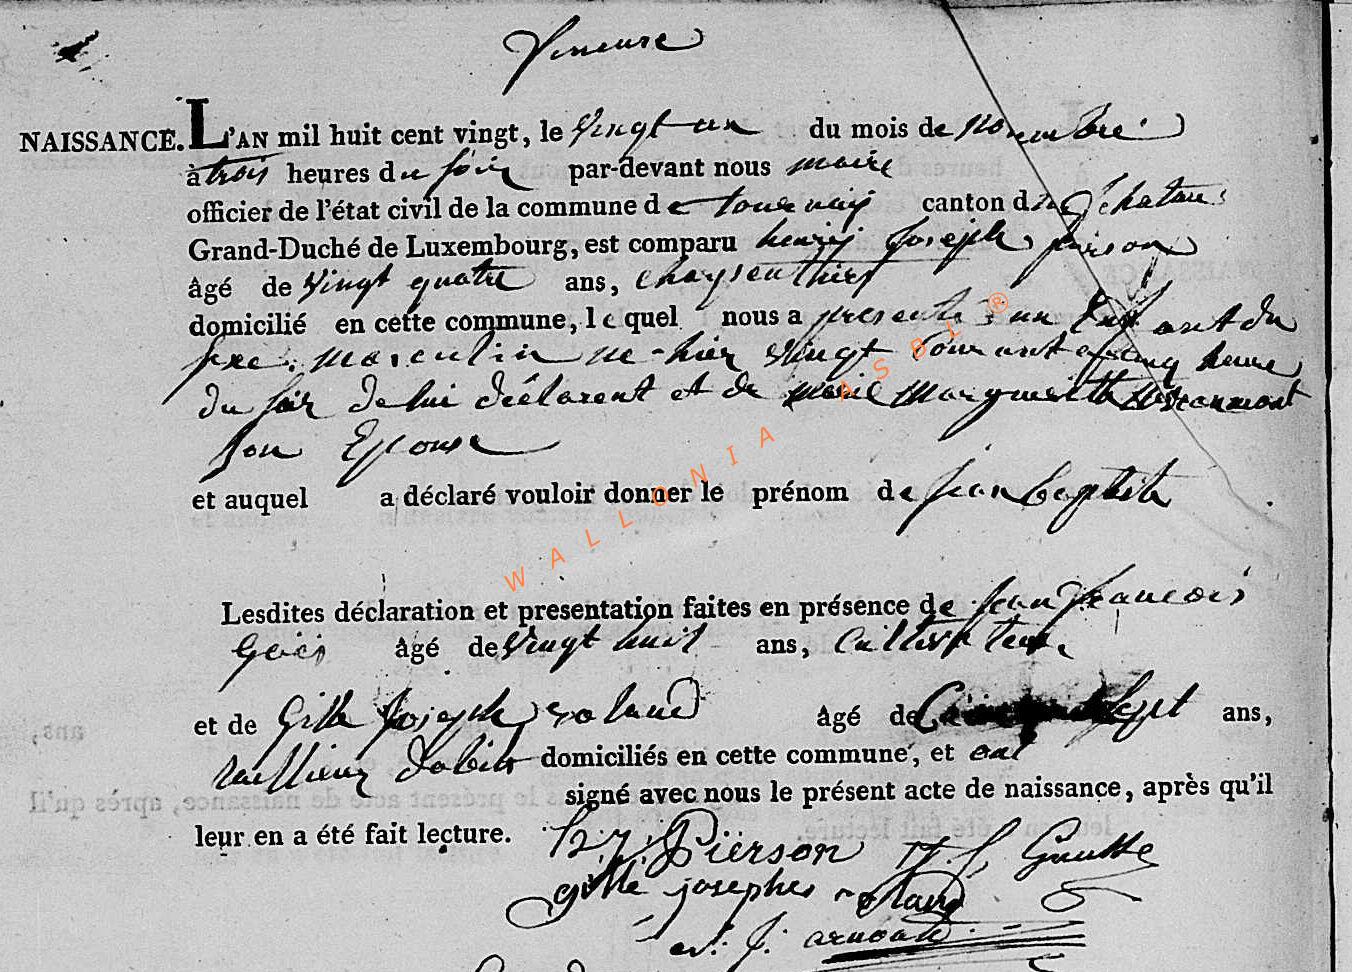 NAISSANCE. L'AN mil huit cent vingt, le vingt un du mois de novembre
à trois heures du soir par-devant nous maire
officier de l'état civil de la commune de tournay canton de
Grand-Duché de Luxembourg, est comparu henry Joseph pierson
âgé de vingt quatre ans,
domicilié en cette commune, lequel nous a presenté un Enfant du
sexe masculin né hier vingt Courant a cinq heure
du soir de lui déclarent et de marie Margueritte
son Epouse
et auquel a déclaré vouloir donner le prénom de jean baptiste
WALLONIA ASBL ®
Lesdites déclaration et presentation faites en présence de jean françois
âgé de vingt huit ans, Cultivateur
et de Gille Joseph roland âgé de sept ans,
tailleur dabits domiciliés en cette commune, et ont
signé avec nous le présent acte de naissance, après qu'il
leur en a été fait lecture. h y Piërson
gille josephe roland